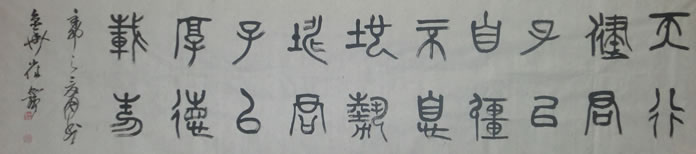 天行
健君
子以
自彊
不息
地勢
坤君
子以
厚德
載物